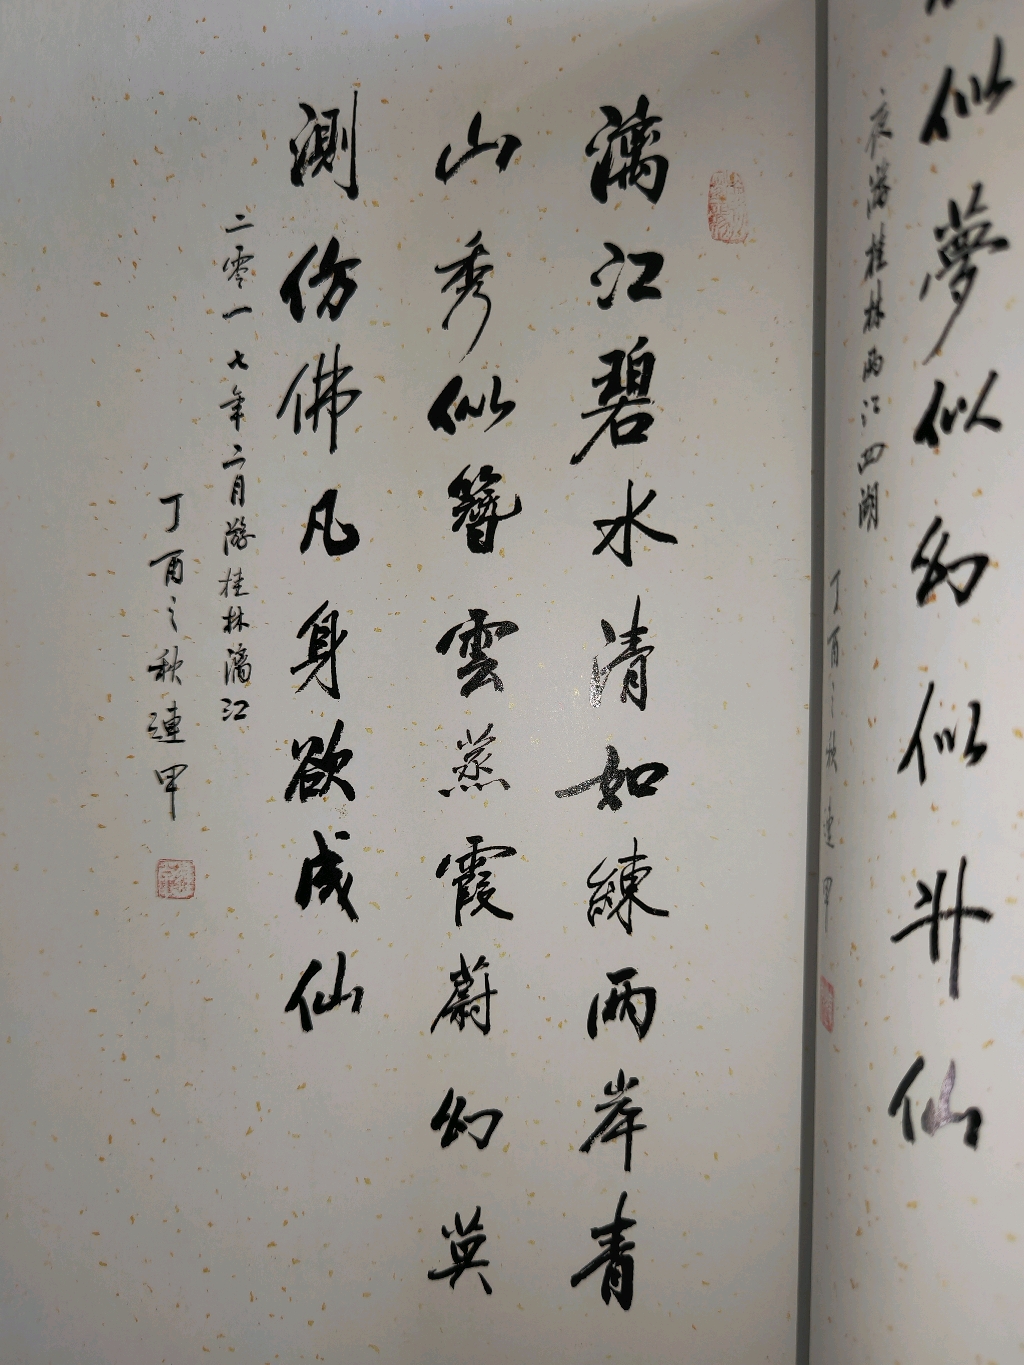 似夢似幻似似升仙
夜游桂林兩江四湖
丁酉之秋連甲
漓江碧水清如練兩岸青
山秀似簪雲蒸霞蔚幻莫
測仿佛凡身欲成仙
二零一七年二月游桂林漓江
丁酉之秋連甲